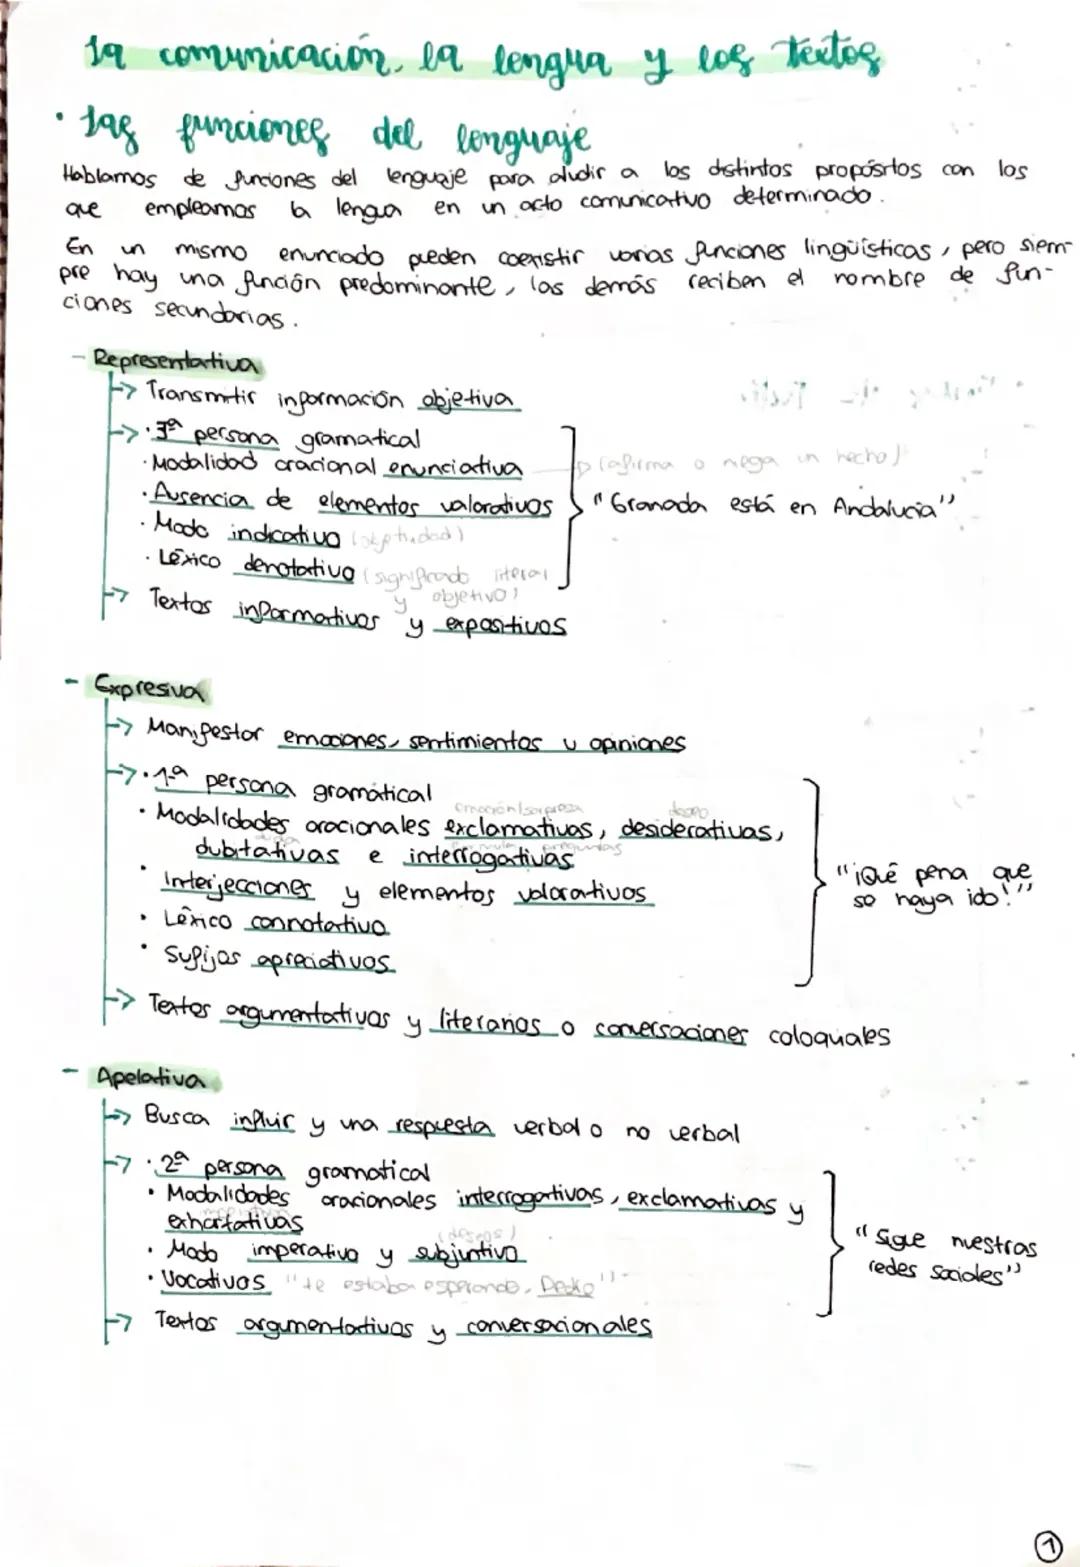 La comunicación, la lengua y los textos
· Las funciones del lenguaje
Hablamos de funciones del lenguaje para aludir a los distintos propósitos con los
que empleamos la lengua en un acto comunicativo determinado.
En un mismo enunciado pueden coexistir varias funciones lingüísticas, pero siem-
pre hay una función predominante, las demás reciben el nombre de fun-
ciones secundarias.
- Representativa
→ Transmitir información objetiva
→ · 3ª persona gramatical
· Modalidad oracional enunciativa → (afirma o niega un hecho)
· Ausencia de elementos valorativos "Granada está en Andalucia"
· Modo indicativo (objetividad)
· Léxico denotativo (significado literal
y objetivo)
→ Textos informativos y expositivos
- Expresiva
→ Manifestar emociones, sentimientos u opiniones
→ · 1ª persona gramatical
emoción/sorpresa deseo
· Modalidades oracionales exclamativas, desiderativas,
duda formula preguntas
dubitativas e interrogativas
· Interjecciones y elementos valorativos "¡Qué pena que
se haya ido!"
· Léxico connotativo
· Sufijos apreciativos
→ Textos argumentativos y literarios o conversaciones coloquiales
- Apelativa
→ Busca influir y una respuesta verbal o no verbal
→ · 2ª persona gramatical
· Modalidades oracionales interrogativas, exclamativas y
exhortativas
(deseos)
· Modo imperativo y subjuntivo "Sigue nuestras
redes sociales"
· Vocativos "te estaba esperando, Pedro"
→ Textos argumentativos y conversacionales
1